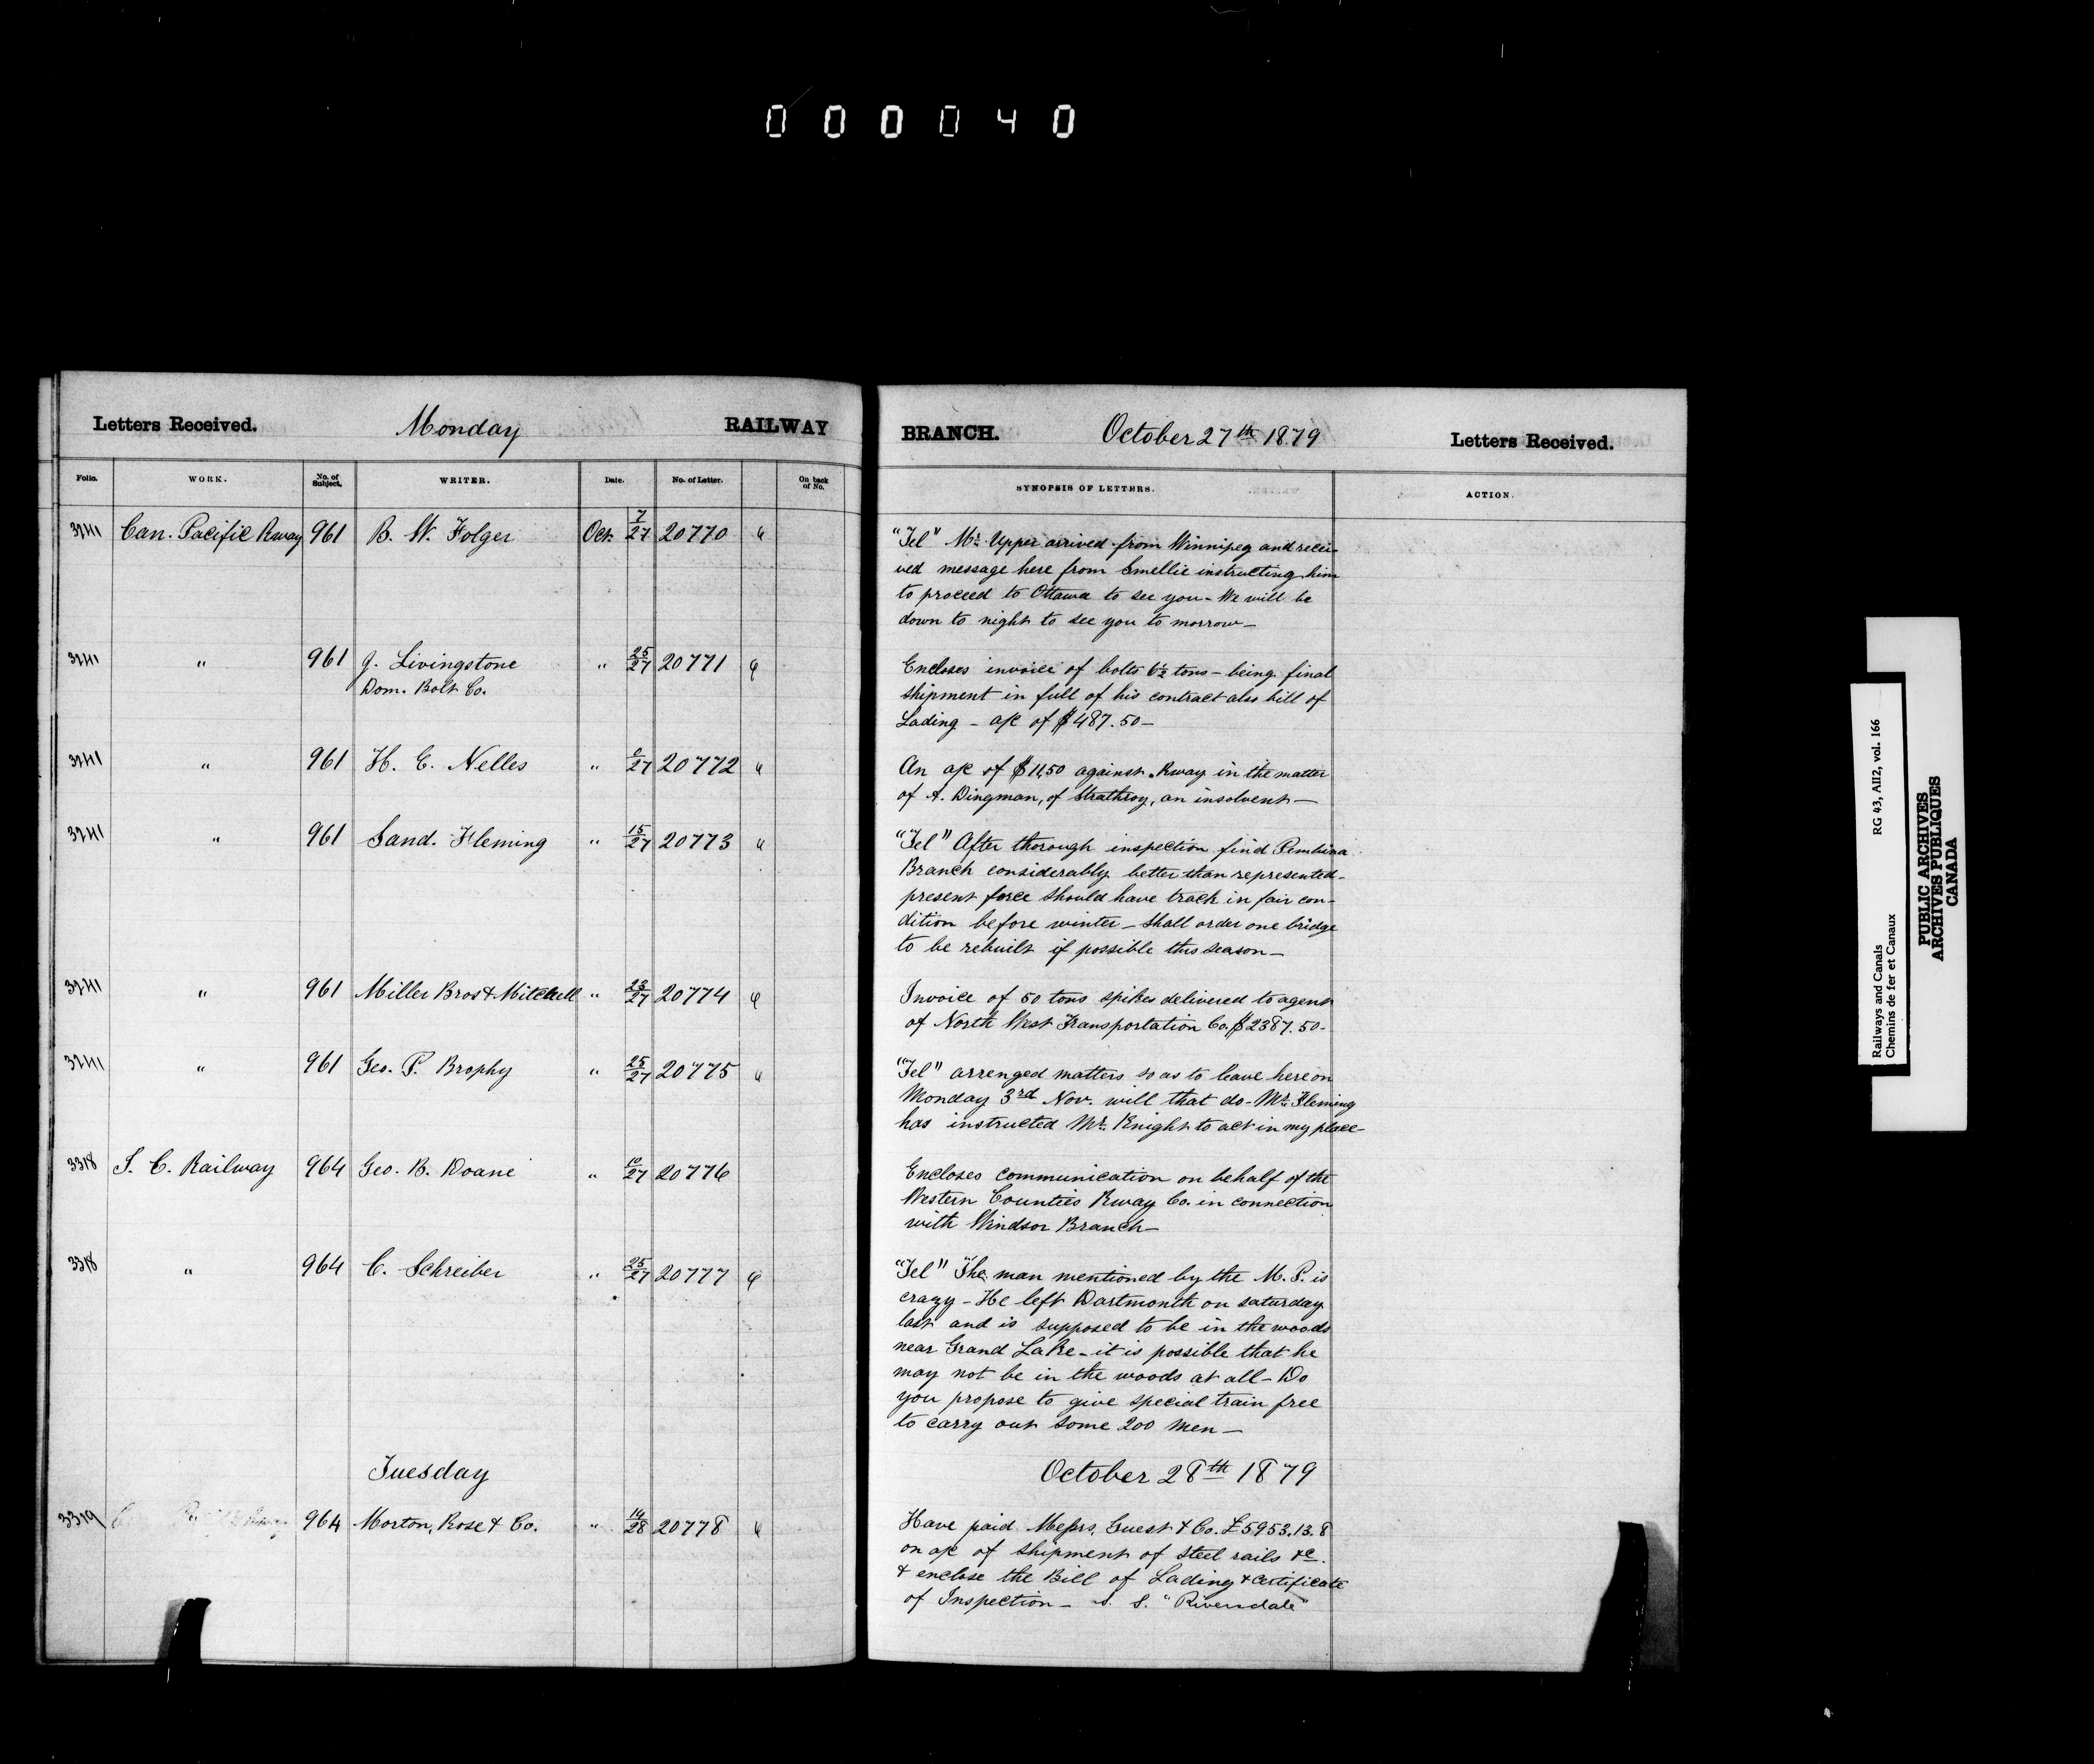 000040
Letters Received. Monday RAILWAY BRANCH. October 27th 1879 Letters Received.
Folio. WORK. No. of Subject. WRITER. Date. No. of Letter. On back of No. SYNOPSIS OF LETTERS. ACTION.
3241 Can. Pacific Rway 961 B. W. Folger Oct. 7/27 20770 "Tel" Mr. Upper arrived from Winnipeg and recei-
ved message here from Smellie instructing him
to proceed to Ottawa to see you - We will be
down to night to see you to morrow -
3241 " 961 J. Livingstone " 25/27 20771 Encloses invoice of bolts 6½ tons - being final
Dom. Bolt Co. shipment in full of his contract also bill of
Lading - a/c of $487.50 -
3241 " 961 H. C. Nelles " /27 20772 An a/c of $11.50 against Rway in the matter
of A. Dingman, of Strathroy, an insolvent -
3241 " 961 Sand. Fleming " 15/27 20773 "Tel" After thorough inspection find Pembina
Branch considerably better than represented -
present force should have track in fair con-
dition before winter - Shall order one bridge
to be rebuilt if possible this season -
3241 " 961 Miller Bros & Mitchell " 23/27 20774 Invoice of 50 tons spikes delivered to agent
of North West Transportation Co. $2387.50 -
3241 " 961 Geo. P. Brophy " 25/27 20775 "Tel" arrenged matters so as to leave here on
Monday 3rd Nov. will that do - Mr. Fleming
has instructed Mr. Knight to act in my place -
3318 I. C. Railway 964 Geo. B. Doane " 10/27 20776 Encloses communication on behalf of the
Western Counties Rway Co. in connection
with Windsor Branch -
3318 " 964 C. Schreiber " 25/27 20777 "Tel" The man mentioned by the M. P. is
crazy - He left Dartmouth on saturday
last and is supposed to be in the woods
near Grand Lake - it is possible that he
may not be in the woods at all - Do
you propose to give special train free
to carry out some 200 men -
Tuesday October 28th 1879
3319 964 Morton, Rose & Co. " 14/28 20778 Have paid Messrs. Guest & Co. £5953.13.8
on a/c of shipment of steel rails &c.
& enclose the Bill of Lading & certificate
of Inspection - S. S. "Riversdale"
Railways and Canals RG 43, AII2, vol. 166
Chemins de fer et Canaux
PUBLIC ARCHIVES
ARCHIVES PUBLIQUES
CANADA